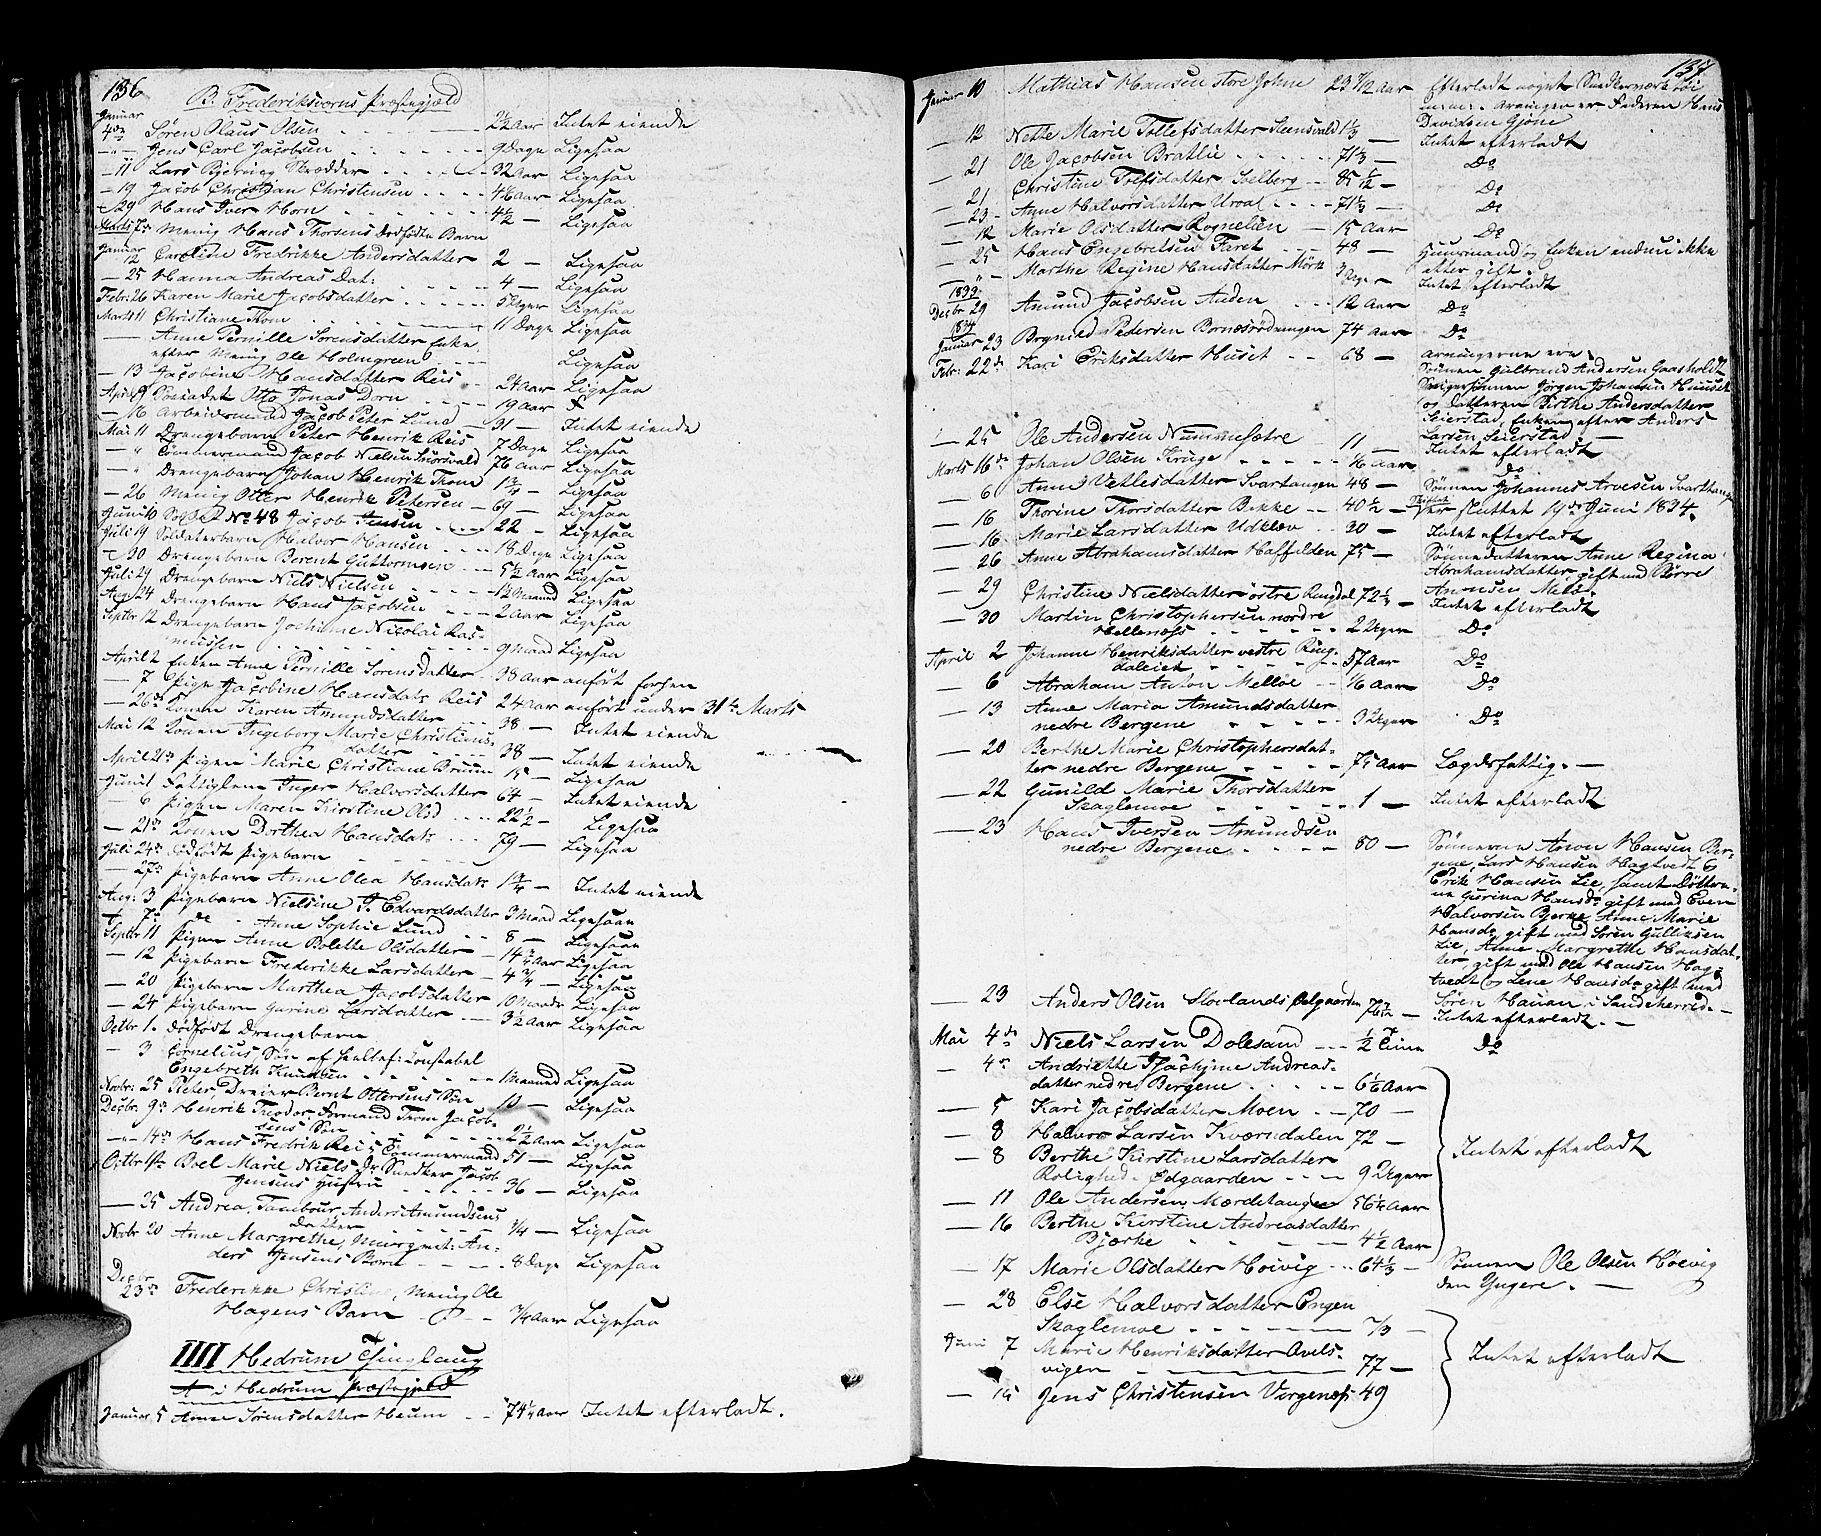 136
B. Frederiksværns Præstegjeld
Januar
4de Sören Claus Olsen 2½ Aar Intet eiende
" Jens Carl Jacobsen 9 Dage Ligesaa
11 Lars Bjerning Skrædder 32 Aar Ligesaa
19 Jacob Christian Christensen Aar Ligesaa
29 Hans Iver Horn 4½ Ligesaa
Marts Menig Hans Thorsens dødfødte Barn
Januar
12 Caroline Fredrikke Andersdatter 2 Ligesaa
25 Hanna Andreas Dat: 4 Ligesaa
Febr: 26 Karen Marie Jacobsdatter 5 Uger Ligesaa
Marts 11 Christiane Thom 11 Dage Ligesaa
Anne Pernille Sörensdatter Enke
efter Menig Ole Holmgreen Ligesaa
13 Jacobine Hansdatter Reis 24 Aar Ligesaa
April 9 Otto Jonas Dorn 19 Aar
16 Arbeidsmand Jacob Peter Lund 31 Intet eiende
Mai 11 Drengebarn Peter Henrik Reis 7 Dage Ligesaa
" Tömmermand Jacob Nielsen 76 Aar Ligesaa
" Drengebarn Johan Henrik Thom 1¾ Ligesaa
26 Menig Otter Henrik Petersen 69 Ligesaa
Juni No 48 Jacob Jensen 22 Ligesaa
Juli 19 Soldaterbarn Halvor Hansen 18 Dage Ligesaa
30 Drengebarn Berent Guttormsen 5½ Aar Ligesaa
Juli 29 Drengebarn Niels Nielsen 12 Maaned Ligesaa
Aug: 24 Drengebarn Hans Jacobsen 2 Aar Ligesaa
Septbr 12 Drengebarn Jochime Nicolai Ras-
mussen 9 Maad Ligesaa
April 2 Enken Anne Pernille Sörensdatter 38 Aar anfört forhen
7 Pige Jacobine Hansdatr Reis 24 Aar anfört under 31te Marts
26de Konen Karen Amundsdatter 38 Intet eiende
Mai 12 Konen Ingeborg Marie Christians-
datter 38 Intet eiende
April 21de Pigen Marie Christiane Bruun 15 Ligesaa
Juni 1 Fattiglem Inger Halvorsdatter 64 Intet eiende
6 Pigen Maren Kirstine Olsd 22½ Ligesaa
21de Konen Dorthea Hansdatr 79 Ligesaa
Juli 24de dödfödt Pigebarn
27de Pigebarn Anne Olea Hansdatr Intet eiende
Aug: 3 Pigebarn Nielsine T. Edvardsdatter 3 Maad Ligesaa
7de do Anne Sophie Lund 8 Ligesaa
Septbr 11 Pigen Anne Bolette Olsdatter Aar Ligesaa
12 Pigebarn Frederikke Larsdatter 4 Ligesaa
20 Pigebarn Marthea Jacobsdatter 10 Maader Ligesaa
24 Pigebarn Gurine Larsdatter 3½ Aar Ligesaa
Octbr 1. dödfödt Drengebarn
3 Cornelius, Sön af Constabel
Engebreth Knudsen 1 Maaned Ligesaa
Novbr: 25 Peter, Dreier Bernt Ottersens Sön 13 Ligesaa
Decbr: 9de Henrik Theodor Formand Thom Jacob-
sens Sön 2½ Aar Ligesaa
14de Hans Fredrik Reis Tömmermand 51 Ligesaa
Octbr Boel Marie Niels Dr Snedker Jacob
Jensens Hustru 36 Ligesaa
25 Andrea, Tambour Anders Amundsens
Datter ¼ Ligesaa
Novbr 20 Anne Margrethe, An-
ders Jensens Barn 8 Dage Ligesaa
Decbr
23de Frederikke Christine, Menig Ole
Hagens Barn Aar Ligesaa
IIII Hedrum Tinglaug
A i Hedrum Præstegjeld
Januar 5 Anne Sörensdatter Heum 74¼ Aar Intet efterladt.
137
Januar 10 Mathias Hansen store Johne 23 Aar Efterladt noget Snedkerværktöi
m: m: Arvingen er Faderen Hans
Davidsen Gjöne
12 Nette Marie Tollefsdatter Steensvald 1⅓ Intet efterladt
21 Ole Jacobsen Bratlie 71⅓ Do
21 Christine Tolfsdatter Solberg 85 Do
23 Anne Halvorsdatter 71⅓ Do
12 Marie Olsdatter Rognelien 15 Aar Do
25 Hans Engebretsen Faret 48 Huusmand og Enken endnu ikke
atter gift.
" Marthe Regine Hansdatter Mörk 3 Uger Intet efterladt
1833
Decbr 29 Amund Jacobsen Anden 12 Aar Do
1834
Januar 23 Brynild Pedersen 74 Aar Do
Febr: 22de Kari Eriksdatter Huset 68 Arvingerne ere:
Sönnen Gulbrand Andersen Gaasholdt
Svigersönnen Jörgen Johansen Huuset
og Datteren Birthe Andersdatter
Seierstad, Enken efter Anders
Larsen Seierstad
25 Ole Andersen Nummesætre 11 Intet efterladt
Marts 16de Johan Olsen Kruge Aar Do
6 Anne Vetlesdatter Svartangen 48 Sönnen Johannes Arvesen Svartangen
16 Thorine Thorsdatter Bekke 40½ Skiftet sluttet 19de Juni 1834.
16 Marie Larsdatter Udklev 30 Intet efterladt
26 Anne Abrahamsdatter Haffelden 75 Sönnedatteren Anne Regina
Abrahamsdatter gift med Börre
Amnsen Melö.
29 Christine Nielsdatter östre Ringdal 72⅓ Intet efterladt
30 Martin Christophersen nordre
Hellenæss 2 Uger Do
April 2 Johanne Henriksdatter vestre Ring-
daleiet 57 Aar Do
6 Abraham Anton Melløe Aar Do
13 Anne Maria Amundsdatter
nedre Bergene 3 Uger Do
20 Berthe Marie Christophersdat-
ter nedre Bergene 75 Aar Lægdsfattig.
22 Gunild Marie Thorsdatter
Skaglemoe 1 Intet efterladt
23 Hans Iversen Amundsen
nedre Bergene 80 Sönnerne Anon Hansen Ber-
gene, Lars Hansen Hagtvedt &
Erik Hansen Lie, samt Döttre-
ne Gurina Hansdr gift med Even
Halvorsen Bjerke, Anne Marie
Hansdr gift med Sören Gulliksen
Lie, Anne Margrethe Hansdat-
ter, gift med Ole Hansen Hag-
tvedt og Lene Hansdr gift med
Sören Hauan i Sandeherred.
23 Anders Olsen Slovlands Ödgaarden 76½ Intet efterladt.
Mai 4de Niels Larsen Dolesand ½ Time Do
4de Andrikke Jsachine Andreas-
datter nedre Bergene 6½ Aar
5 Kari Jacobsdatter Moen 70
8 Halvor Larsen Kværndalen 72
8 Berthe Kirstine Larsdatter
Rolighed Ödgaarden 9 Uger Intet efterladt
11 Ole Andersen Mærdetangen 56¼ Aar
16 Berthe Kirstine Andreasdatter
Bjerke 4½ Aar
17 Marie Olsdatter Höivig 64⅓ Sönnen Ole Olsen Höevig
den Yngere.
28 Else Halvorsdatter Engen
Skaglemoe
Juni 7 Marie Henriksdatter Avels-
vigen 77 Intet efterladt
15 Jens Christensen Vergenæs 49